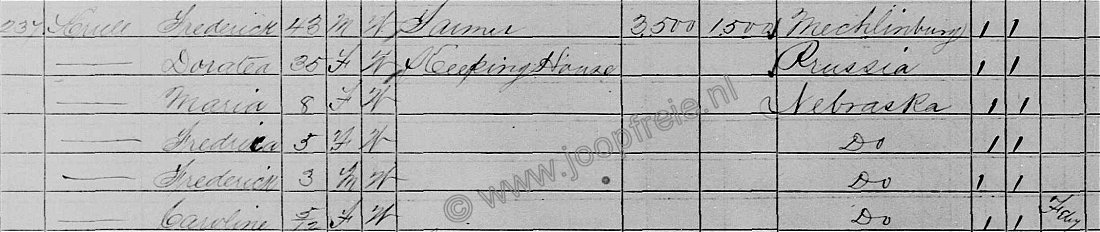 237 Krull Frederick 43 M W Farmer 3,500 1,500 Mechlinburg / /
— Doratea 35 F W Keeping House Prussia / /
— Maria 8 F W Nebraska / /
— Fredrica 5 F W Do / /
— Frederick 3 M W Do / /
— Caroline 5/12 F W Do / /
© www.joopfreie.nl